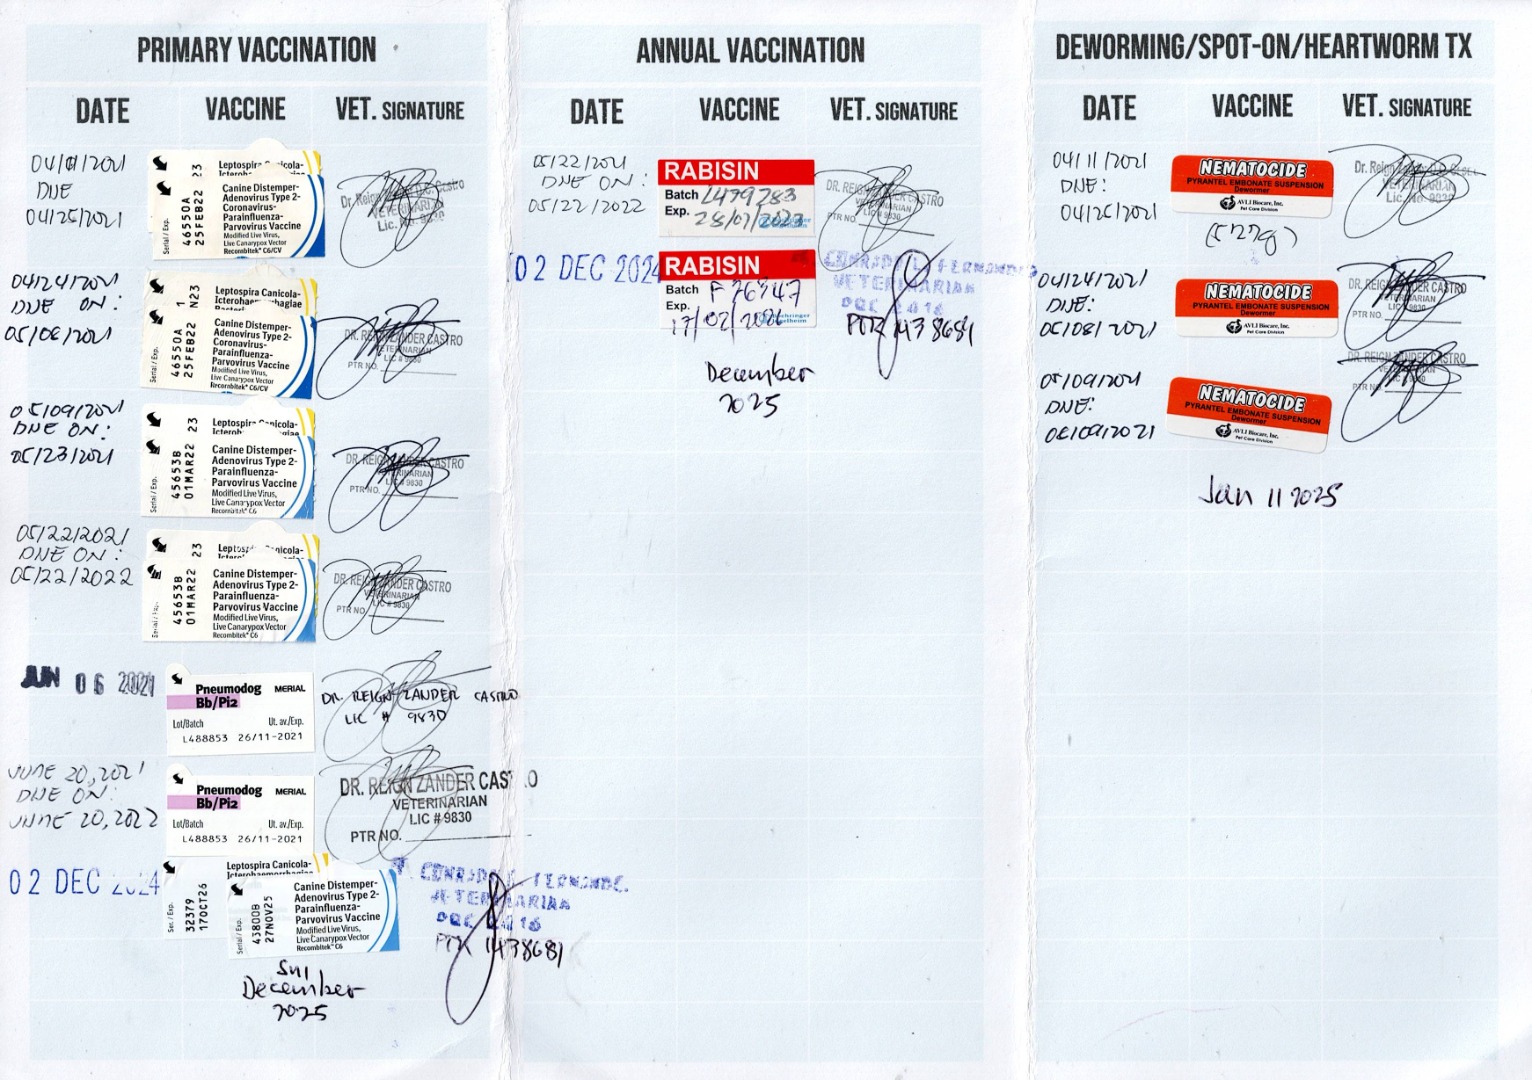 PRIMARY VACCINATION
DATE VACCINE VET. SIGNATURE
04/11/2021
DUE
04/25/2021
23
Leptospira Canicola-
Serial / Exp.
46550A
25FEB22
Canine Distemper-
Adenovirus Type 2-
Coronavirus-
Parainfluenza-
Parvovirus Vaccine
Modified Live Virus,
Live Canarypox Vector
Recombitek® C6/CV
Dr. Reign Castro
VETERINARIAN
Lic. No. 9830
04/24/2021
DUE ON:
05/08/2021
1 N23
Leptospira Canicola-
Icterohaemorrhagiae
Serial / Exp.
46550A
25FEB22
Canine Distemper-
Adenovirus Type 2-
Coronavirus-
Parainfluenza-
Parvovirus Vaccine
Modified Live Virus,
Live Canarypox Vector
Recombitek® C6/CV
DR. REIGN ZANDER CASTRO
VETERINARIAN
LIC # 9830
PTR NO.
05/09/2021
DUE ON:
05/23/2021
23
Leptospira Canicola-
Serial / Exp.
45653B
01MAR22
Canine Distemper-
Adenovirus Type 2-
Parainfluenza-
Parvovirus Vaccine
Modified Live Virus,
Live Canarypox Vector
Recombitek® C6
DR. REIGN ZANDER CASTRO
VETERINARIAN
LIC # 9830
PTR NO.
05/22/2021
DUE ON:
05/22/2022
23
Leptospira Canicola-
Serial / Exp.
45653B
01MAR22
Canine Distemper-
Adenovirus Type 2-
Parainfluenza-
Parvovirus Vaccine
Modified Live Virus,
Live Canarypox Vector
Recombitek® C6
DR. REIGN ZANDER CASTRO
VETERINARIAN
LIC # 9830
PTR NO.
JUN 06 2021
Pneumodog MERIAL
Bb/Pi2
Lot/Batch Ut. av./Exp.
L488853 26/11-2021
DR. REIGN ZANDER CASTRO
LIC # 9830
JUNE 20, 2021
DUE ON:
JUNE 20, 2022
Pneumodog MERIAL
Bb/Pi2
Lot/Batch Ut. av./Exp.
L488853 26/11-2021
DR. REIGN ZANDER CASTRO
VETERINARIAN
LIC # 9830
PTR NO.
02 DEC 2024
Leptospira Canicola-
Icterohaemorrhagiae
Ser. / Exp.
32379
17OCT26
Serial / Exp.
43800B
27NOV25
Canine Distemper-
Adenovirus Type 2-
Parainfluenza-
Parvovirus Vaccine
Modified Live Virus,
Live Canarypox Vector
Recombitek® C6
CONRADO L. FERNANDEZ
VETERINARIAN
PTR 1438681
5in1
December
2025
ANNUAL VACCINATION
DATE VACCINE VET. SIGNATURE
05/22/2021
DUE ON:
05/22/2022
RABISIN
Batch L479283
Exp. 28/07/2023
DR. REIGN ZANDER CASTRO
VETERINARIAN
LIC # 9830
PTR NO.
02 DEC 2024
RABISIN
Batch F76347
Exp.
17/02/2026
CONRADO L. FERNANDEZ
VETERINARIAN
PTR 1438681
December
2025
DEWORMING/SPOT-ON/HEARTWORM TX
DATE VACCINE VET. SIGNATURE
04/11/2021
DUE:
04/25/2021
NEMATOCIDE
PYRANTEL EMBONATE SUSPENSION
Dewormer
AVLI Biocare, Inc.
Pet Care Division
Dr. Reign
VETERINARIAN
Lic. No. 9830
04/24/2021
DUE:
05/08/2021
NEMATOCIDE
PYRANTEL EMBONATE SUSPENSION
Dewormer
AVLI Biocare, Inc.
Pet Care Division
DR. REIGN ZANDER CASTRO
VETERINARIAN
LIC # 9830
PTR NO.
05/09/2021
DUE:
06/09/2021
NEMATOCIDE
PYRANTEL EMBONATE SUSPENSION
Dewormer
AVLI Biocare, Inc.
Pet Care Division
DR. REIGN ZANDER CASTRO
VETERINARIAN
LIC # 9830
PTR NO.
Jan 11 2025